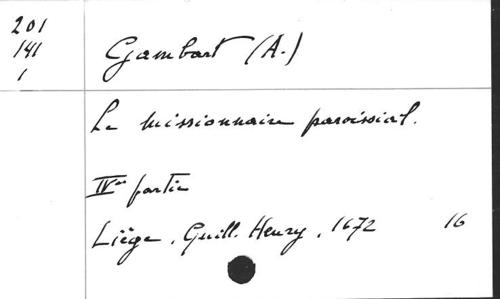 201
141
1
Gambart (A.)
Le missionnaire paroissial.
IVme partie
Liège, Guill. Henry, 1672 16